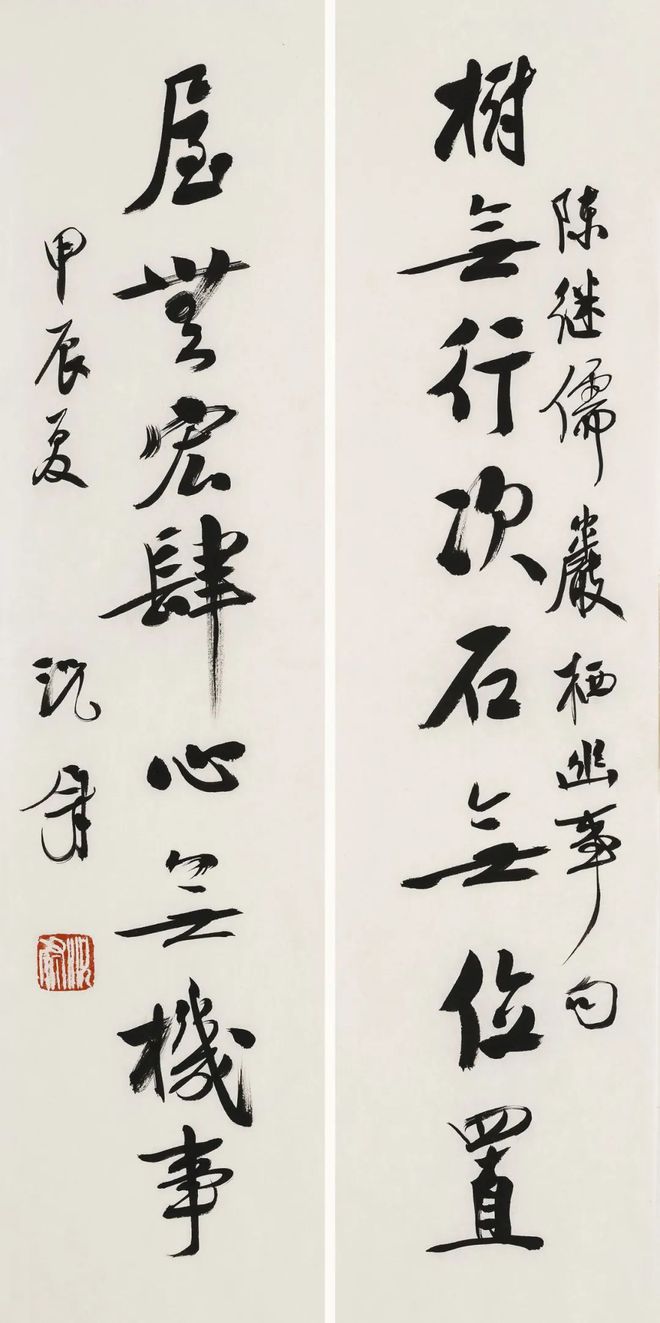 陳继儒巖栖幽事句
樹無行次石無位置
屋無宏肆心無機事
甲辰夏